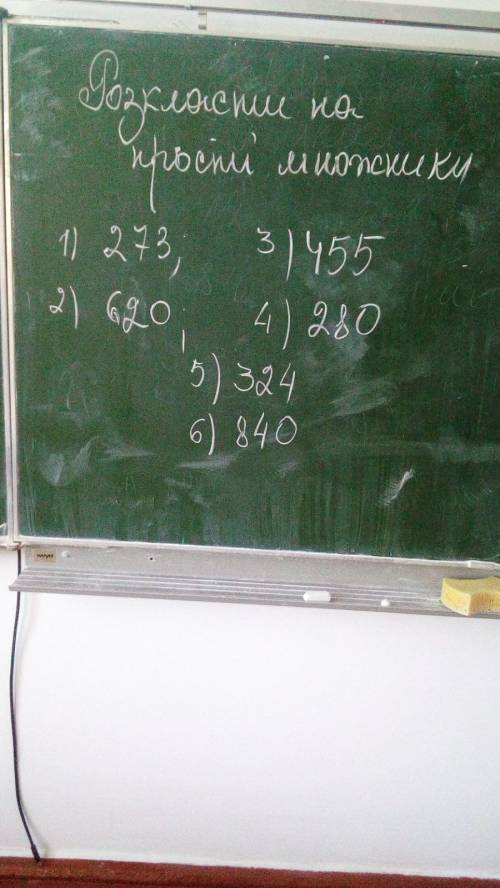 Розкласти на
прості множники
1) 273; 3) 455
2) 620; 4) 280
5) 324
6) 840